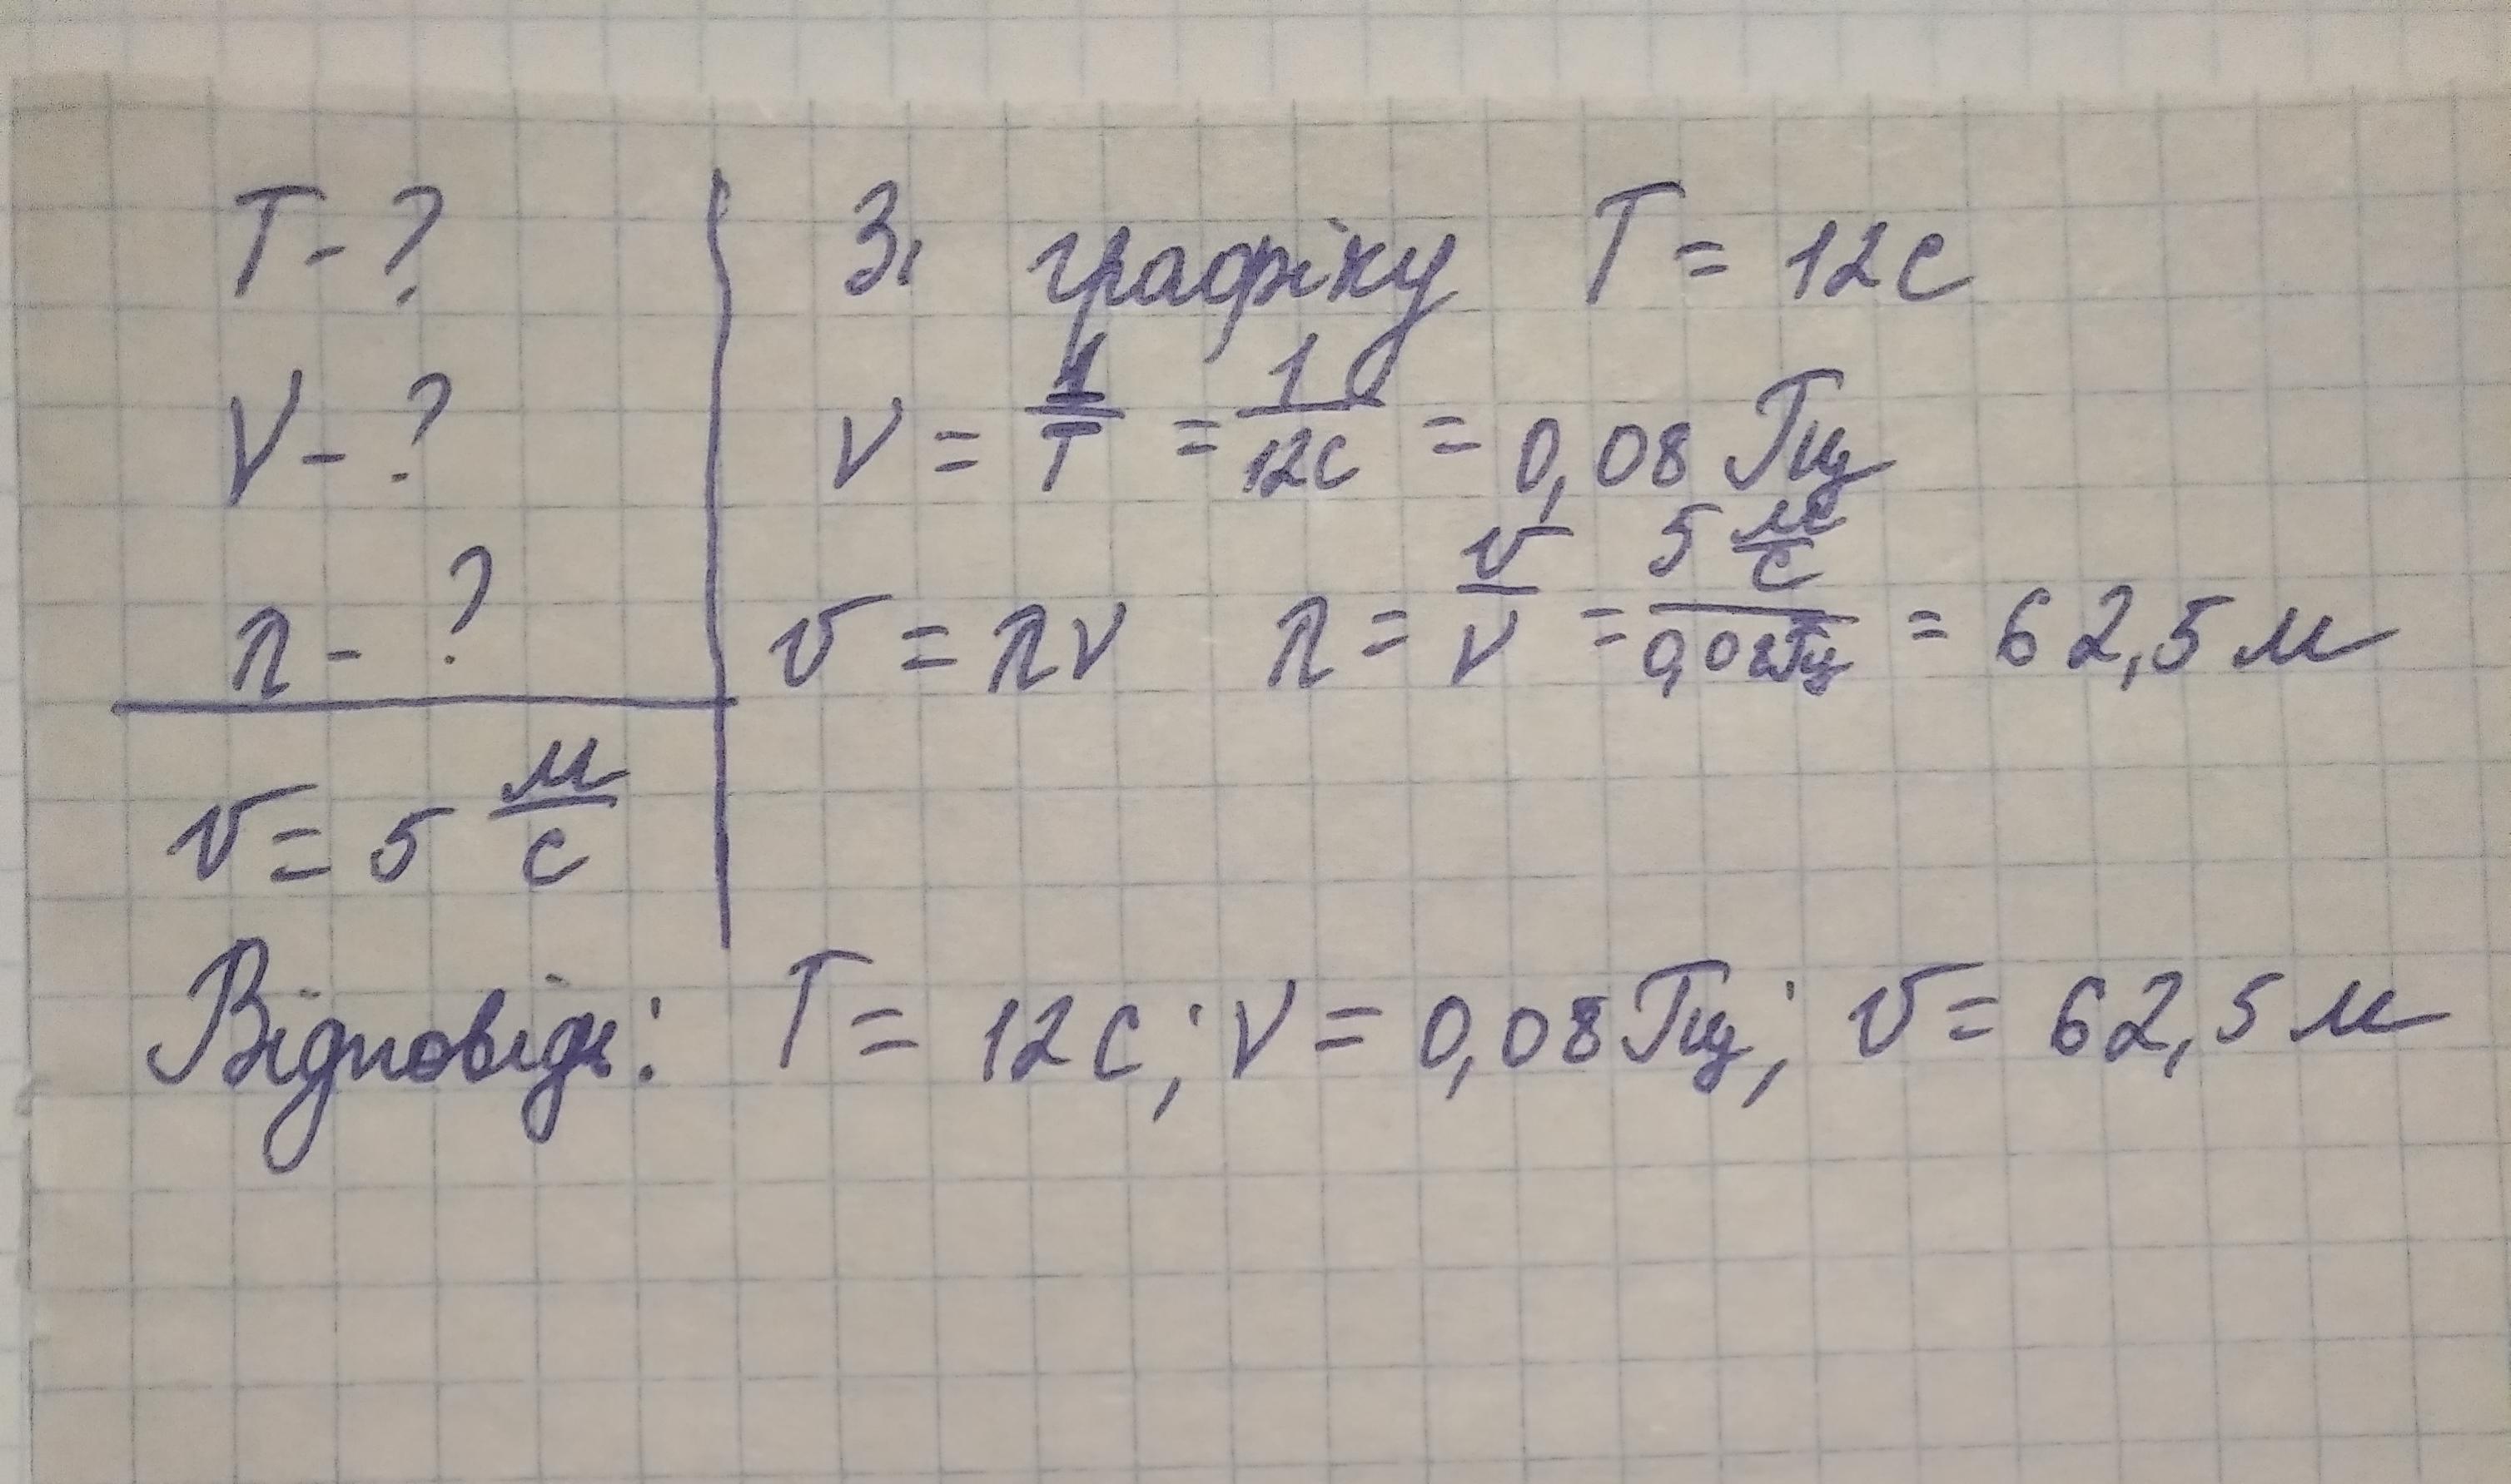 T - ?
ν - ?
λ - ?
υ = 5 м/с
Зі графіку T = 12 с
ν = 1/T = 1/12с = 0,08 Гц
υ = λν λ = υ/ν = 5 м/с / 0,08Гц = 62,5 м
Відповідь: T = 12 с; ν = 0,08 Гц; υ = 62,5 м